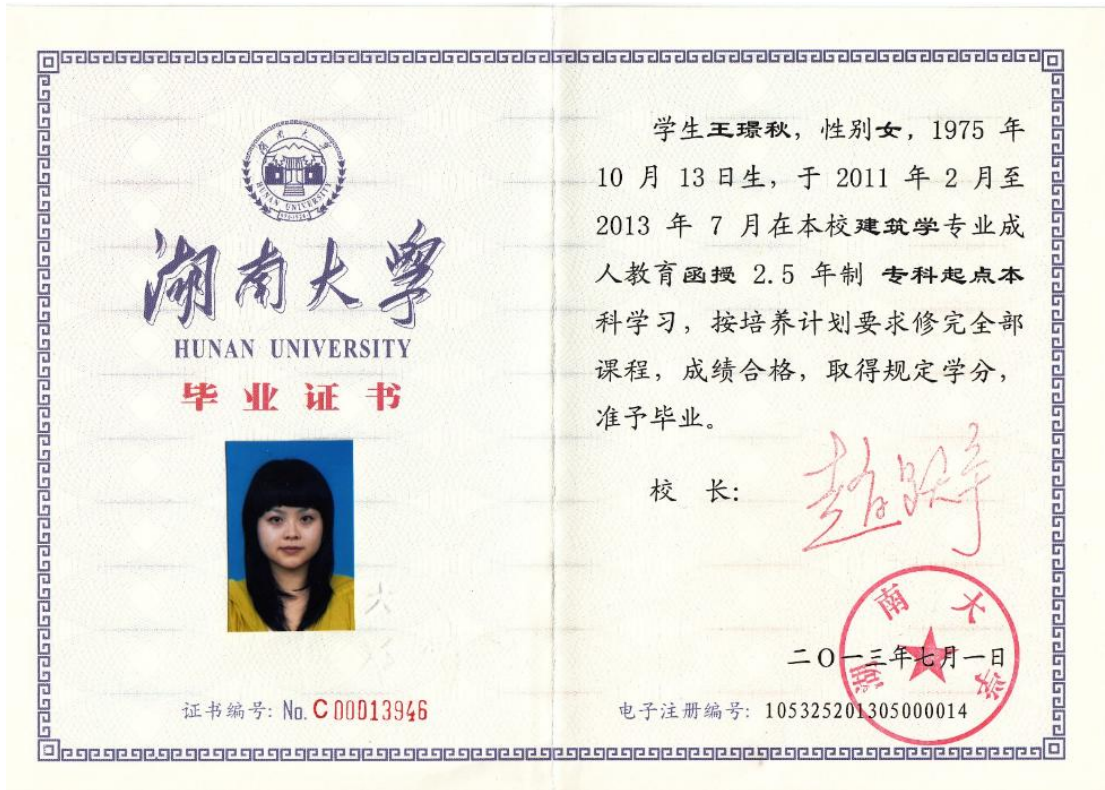 湖南大学
HUNAN UNIVERSITY
湖南大学
HUNAN UNIVERSITY
毕业证书
证书编号: No. C 00013946
学生王璟秋, 性别女, 1975 年
10 月 13 日生, 于 2011 年 2 月至
2013 年 7 月在本校建筑学专业成
人教育函授 2.5 年制 专科起点本
科学习, 按培养计划要求修完全部
课程, 成绩合格, 取得规定学分,
准予毕业。
校 长:
湖南大学
二〇一三年七月一日
电子注册编号: 105325201305000014